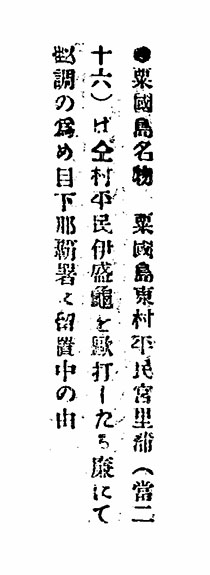 ●粟國島名物　粟國島東村平民宮里蒲（當二
十六）は仝村平民伊盛龜を毆打したる廉にて
調の爲め目下那覇署に留置中の由